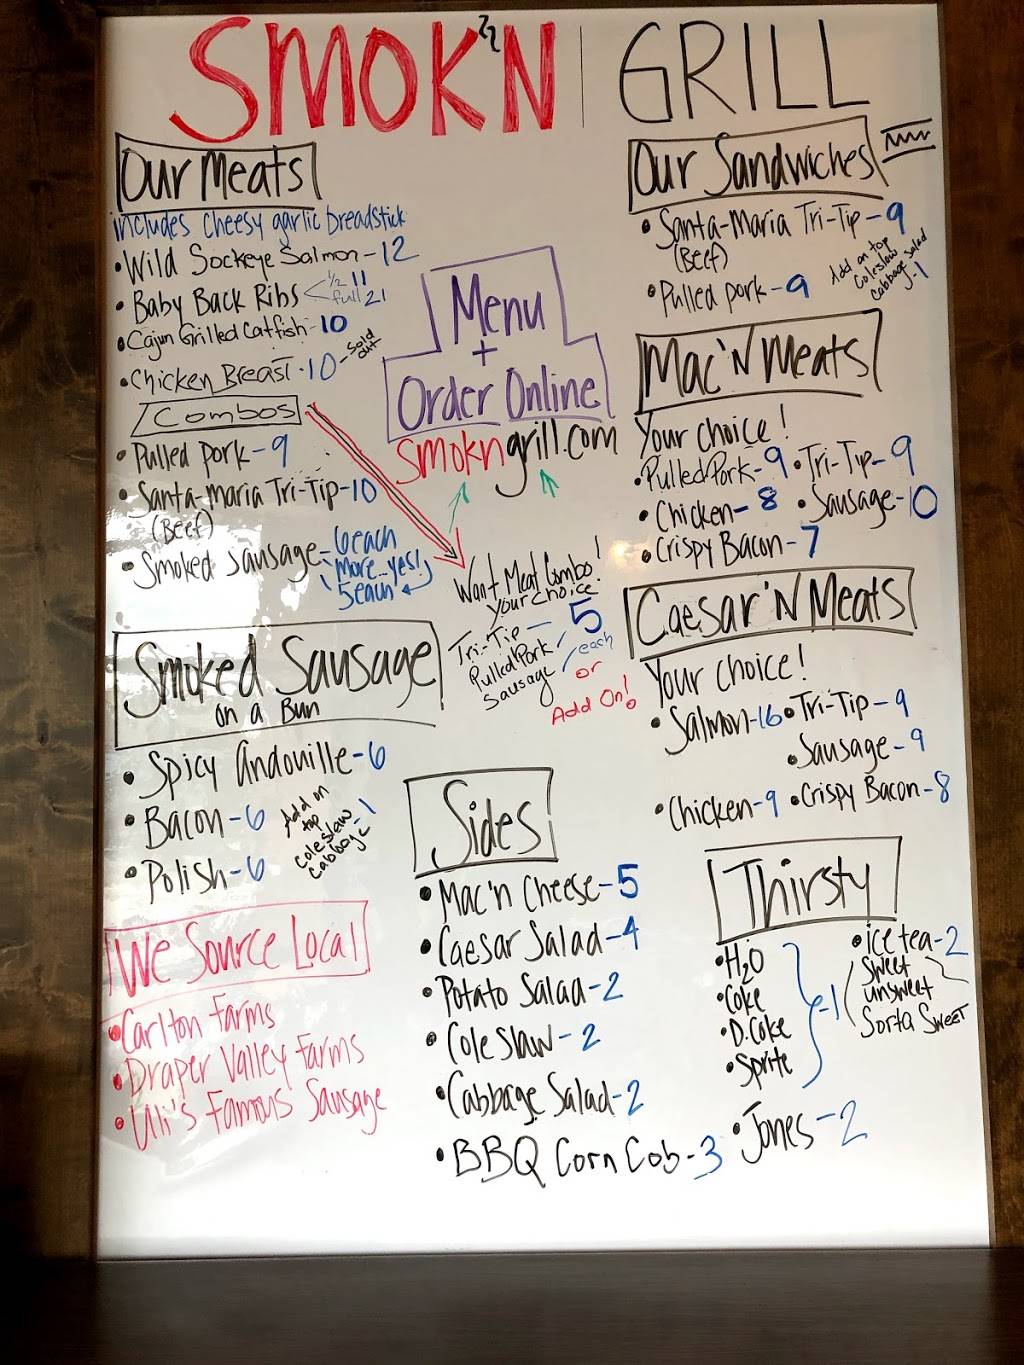 SMOKN | GRILL
Our Meats
includes cheesy garlic breadstick
• Wild Sockeye Salmon - 12
• Baby Back Ribs < 1/2 11
full 21
• Cajun Grilled Catfish - 10
• Chicken Breast - 10 - Sold out
Combos
• Pulled Pork - 9
• Santa-maria Tri-Tip - 10
(Beef)
• Smoked Sausage - 6 each
more...yes!
5 each
Smoked Sausage
on a Bun
• Spicy Andouille - 6
• Bacon - 6
• Polish - 6
Add on
top
coleslaw - 1
cabbage
We Source Local
• Carlton Farms
• Draper Valley Farms
• Uli's Famous Sausage
Menu
+
Order Online
smokngrill.com
Want Meat Combo!
your choice
Tri-Tip - 5
Pulled Pork / each
Sausage
or
Add On!
Sides
• Mac'n Cheese - 5
• Caesar Salad - 4
• Potato Salad - 2
• Coleslaw - 2
• Cabbage Salad - 2
• BBQ Corn Cob - 3
Our Sandwiches
• Santa-Maria Tri-Tip - 9
(Beef)
• Pulled pork - 9
Add on top
Coleslaw
cabbage salad
- 1
Mac 'N Meats
Your choice!
• Pulled Pork - 9 • Tri-Tip - 9
• Chicken - 8 • Sausage - 10
• Crispy Bacon - 7
Caesar 'N Meats
Your choice!
• Salmon - 16 • Tri-Tip - 9
• Sausage - 9
• Chicken - 9 • Crispy Bacon - 8
Thirsty
• H2O
• Coke
• D. Coke
• Sprite
- 1
• ice tea - 2
Sweet
unsweet
Sorta Sweet
• Jones - 2